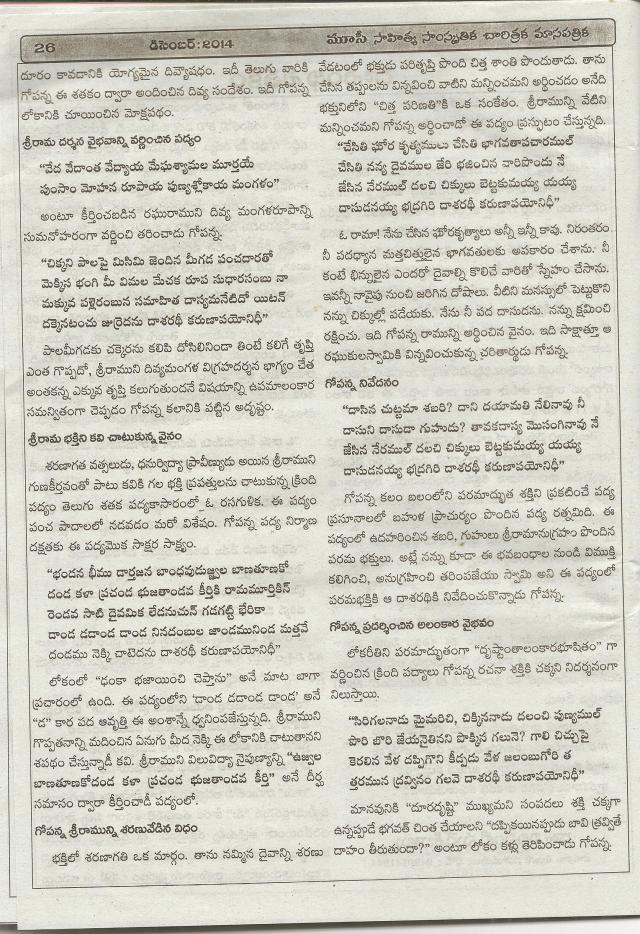 26
డిసెంబర్:2014
మూసీ సాహిత్య సాంస్కృతిక చారిత్రక మాసపత్రిక
దూరం కావడానికి యోగ్యమైన దివ్యౌషధం. ఇదీ తెలుగు వారికి
గోపన్న ఈ శతకం ద్వారా అందించిన దివ్య సందేశం. ఇదీ గోపన్న
లోకానికి చూయించిన మోక్షపథం.
శ్రీరామ దర్శన వైభవాన్ని వర్ణించిన పద్యం
"వేద వేదాంత వేద్యాయ మేఘశ్యామల మూర్తయే
పుంసాం మోహన రూపాయ పుణ్యశ్లోకాయ మంగళం"
అంటూ కీర్తించబడిన రఘురాముని దివ్య మంగళరూపాన్ని
సుమనోహరంగా వర్ణించి తరించాడు గోపన్న.
"చిక్కని పాలపై మిసిమి జెందిన మీగడ పంచదారతో
మెక్కిన భంగి మీ విమల మేచక రూప సుధారసంబు నా
మక్కువ పళ్లెరంబున సమాహిత దాస్యమనేటిదో యిటన్
దక్కెనటంచు జుర్రెదను దాశరథీ కరుణాపయోనిధీ"
పాలమీగడకు చక్కెరను కలిపి దోసిలినిండా తింటే కలిగే తృప్తి
ఎంత గొప్పదో, శ్రీరాముని దివ్యమంగళ విగ్రహదర్శన భాగ్యం చేత
అంతకన్న ఎక్కువ తృప్తి కలుగుతుందనే విషయాన్ని ఉపమాలంకార
సమన్వితంగా చెప్పడం గోపన్న కలానికి పట్టిన అదృష్టం.
శ్రీరామ భక్తిని కవి చాటుకున్న వైనం
శరణాగత వత్సలుడు, ధనుర్విద్యా ప్రావీణ్యుడు అయిన శ్రీరాముని
గుణకీర్తనంతో పాటు కవికి గల భక్తి ప్రపత్తులను చాటుకున్న క్రింది
పద్యం తెలుగు శతక పద్యకాసారంలో ఓ రసగుళిక. ఈ పద్యం
పంచ పాదాలలో నడవడం మరో విశేషం. గోపన్న పద్య నిర్మాణ
దక్షతకు ఈ పద్యమొక సాక్షర సాక్ష్యం.
"భండన భీము డార్తజన బాంధవుడుజ్జ్వల బాణతూణకో
దండ కళా ప్రచండ భుజతాండవ కీర్తికి రామమూర్తికిన్
రెండవ సాటి దైవమిక లేడనుచున్ గడగట్టి భేరికా
దాండ డడాండ డాండ నినదంబుల జాండమునిండ మత్తవే
దండము నెక్కి చాటెదను దాశరథీ కరుణాపయోనిధీ"
లోకంలో "ఢంకా భజాయించి చెప్తాను" అనే మాట బాగా
ప్రచారంలో ఉంది. ఈ పద్యంలోని 'డాండ డడాండ డాండ' అనే
"డ" కార పద ఆవృత్తి ఈ అంశాన్నే ధ్వనింపజేస్తున్నది. శ్రీరాముని
గొప్పతనాన్ని మదించిన ఏనుగు మీద నెక్కి ఈ లోకానికి చాటుతానని
శపథం చేస్తున్నాడీ కవి. శ్రీరాముని విలువిద్యా నైపుణ్యాన్ని "ఉజ్వల
బాణతూణకోదండ కళా ప్రచండ భుజతాండవ కీర్తి" అనే దీర్ఘ
సమాసం ద్వారా కీర్తించాడీ పద్యంలో.
గోపన్న శ్రీరామున్ని శరణువేడిన విధం
భక్తిలో శరణాగతి ఒక మార్గం. తాను నమ్మిన దైవాన్ని శరణు
వేడటంలో భక్తుడు పరితృప్తి పొంది చిత్త శాంతి పొందుతాడు. తాను
చేసిన తప్పులను విన్నవించి వాటిని మన్నించమని అర్థించడం అనేది
భక్తునిలోని "చిత్త పరిణతి"కి ఒక సంకేతం. శ్రీరామున్ని వేటిని
మన్నించమని గోపన్న అర్థించాడో ఈ పద్యం ప్రస్ఫుటం చేస్తున్నది.
"చేసితి ఘోర కృత్యములు చేసితి భాగవతాపచారముల్
చేసితి నన్య దైవముల జేరి భజించిన వారిపొందు నే
జేసిన నేరముల్ దలచి చిక్కులు బెట్టకుమయ్య యయ్య
దాసుడనయ్య భద్రగిరి దాశరథీ కరుణాపయోనిధీ"
ఓ రామా! నేను చేసిన ఘోరకృత్యాలు అన్నీ ఇన్నీ కావు. నిరంతరం
నీ పదధ్యాన మత్తచిత్తులైన భాగవతులకు అపకారం చేశాను. నీ
కంటే భిన్నులైన ఎందరో దైవాల్ని కొలిచే వారితో స్నేహం చేసాను.
ఇవన్నీ నావైపు నుంచి జరిగిన దోషాలు. వీటిని మనస్సులో పెట్టుకొని
నన్ను చిక్కుల్లో పడేయకు. నేను నీ పద దాసుడను. నన్ను క్షమించి
రక్షించు. ఇది గోపన్న రామున్ని అర్థించిన వైనం. ఇది సాక్షాత్తూ ఆ
రఘుకులస్వామికి విన్నవించుకున్న చరితార్థుడు గోపన్న.
గోపన్న నివేదనం
"దాసిన చుట్టమా శబరి? దాని దయామతి నేలినావు నీ
దాసుని దాసుడా గుహుడు? తావకదాస్య మొసంగినావు నే
జేసిన నేరముల్ దలచి చిక్కులు బెట్టకుమయ్య యయ్య
దాసుడనయ్య భద్రగిరి దాశరథీ కరుణాపయోనిధీ"
గోపన్న కలం బలంలోని పరమాద్భుత శక్తిని ప్రకటించే పద్య
ప్రసూనాలలో బహుళ ప్రాచుర్యం పొందిన పద్య రత్నమిది. ఈ
పద్యంలో ఉదహరించిన శబరి, గుహులు శ్రీరామానుగ్రహం పొందిన
పరమ భక్తులు. అట్లే నన్ను కూడా ఈ భవబంధాల నుండి విముక్తి
కలిగించి, అనుగ్రహించి తరింపజేయు స్వామి అని ఈ పద్యంలో
పరమభక్తికి ఆ దాశరథికి నివేదించుకొన్నాడు గోపన్న.
గోపన్న ప్రదర్శించిన అలంకార వైభవం
లోకరీతిని పరమాద్భుతంగా "దృష్టాంతాలంకారభూషితం" గా
వర్ణించిన క్రింది పద్యాలు గోపన్న రచనా శక్తికి చక్కని నిదర్శనంగా
నిలుస్తాయి.
"సిరిగలనాడు మైమరచి, చిక్కిననాడు దలంచి పుణ్యముల్
పొరి బొరి జేయనైతినని పొక్కిన గలునె? గాలి చిచ్చుపై
కెరలిన వేళ దప్పిగొని కీడ్పడు వేళ జలంబుగోరి త
త్తరమున ద్రవ్వినం గలవె దాశరథీ కరుణాపయోనిధీ"
మానవునికి "దూరదృష్టి" ముఖ్యమని సంపదలు శక్తి చక్కగా
ఉన్నప్పుడే భగవత్ చింత చేయాలని "దప్పికయినప్పుడు బావి త్రవ్వితే
దాహం తీరుతుందా?" అంటూ లోకం కళ్లు తెరిపించాడు గోపన్న.